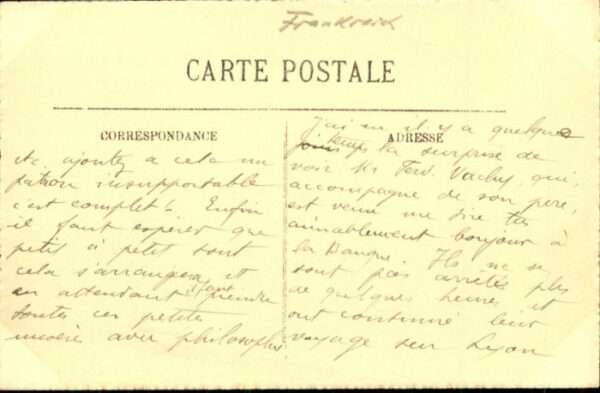 Frankreich
CARTE POSTALE
CORRESPONDANCE
etc. ajoutez a cela un
patron insupportable
c'est complet! Enfin
il faut esperer que
petit à petit tout
cela s'arrangera et
en attendant il faut prendre
toutes ces petites
misères avec philosophie.
ADRESSE
J'ai eu il y a quelques
jours la surprise de
voir Mr Ferd. Vachy, qui,
accompagné de son père,
est venu me dire très
aimablement bonjour à
la Banque. Ils ne se
sont pas arrêtés plus
de quelques heures et
ont continué leur
voyage sur Lyon